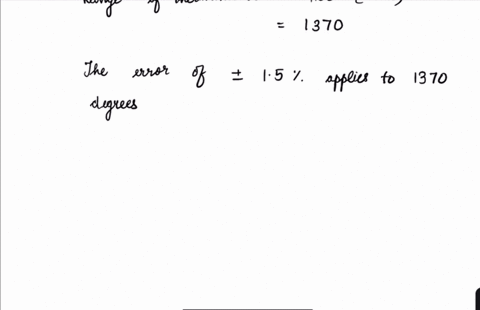 Range of
= 1370
The error of ± 1.5 %. applies to 1370
degrees